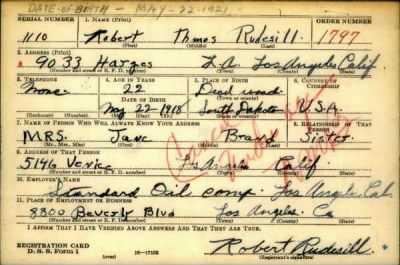 DATE OF BIRTH - MAY - 22 - 1921
SERIAL NUMBER 1. NAME (Print) ORDER NUMBER
1110 Robert Thomas Rudesill 1797
(First) (Middle) (Last)
2. ADDRESS (Print)
9033 Hargis L.A. Los Angeles Calif.
(Number and street or R. F. D. number) (Town) (County) (State)
3. TELEPHONE 4. AGE IN YEARS 5. PLACE OF BIRTH 6. COUNTRY OF CITIZENSHIP
None 22 Deadwood
DATE OF BIRTH
May 22 1918 South Dakota U.S.A.
(Exchange) (Number) (Mo.) (Day) (Yr.) (State or country)
7. NAME OF PERSON WHO WILL ALWAYS KNOW YOUR ADDRESS 8. RELATIONSHIP OF THAT PERSON
MRS. Jane Brand Sister
(Mr., Mrs., Miss) (First) (Middle) (Last)
9. ADDRESS OF THAT PERSON
5146 Venice Los Angeles Calif.
(Number and street or R. F. D. number) (Town) (County) (State)
10. EMPLOYER'S NAME
Standard Oil comp. Los Angeles Cal.
11. PLACE OF EMPLOYMENT OR BUSINESS
8800 Beverly Blvd Los Angeles. Ca
(Number and street or R. F. D. number) (Town) (County) (State)
I AFFIRM THAT I HAVE VERIFIED ABOVE ANSWERS AND THAT THEY ARE TRUE.
REGISTRATION CARD
D. S. S. Form 1 (over) 16-17105 Robert Rudesill
(Registrant's signature)